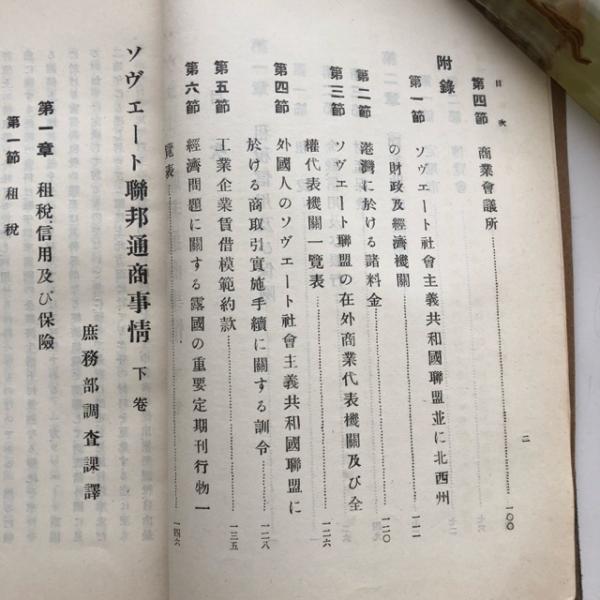 目次
二
第四節 商業會議所…一〇〇
附錄
第一節 ソヴェート社會主義共和國聯盟並に北西州
の財政及經濟機關…一一一
第二節 港灣に於ける諸料金…一二〇
第三節 ソヴェート聯盟の在外商業代表機關及び全
權代表機關一覽表…一二六
第四節 外國人のソヴェート社會主義共和國聯盟に
於ける商取引實施手續に關する訓令…一二八
第五節 工業企業賃借模範約款…一三五
第六節 經濟問題に關する露國の重要定期刊行物一
覽表…一四六
ソヴェート聯邦通商事情 下卷
庶務部調査課譯
第一章 租稅信用及び保險
第一節 租稅